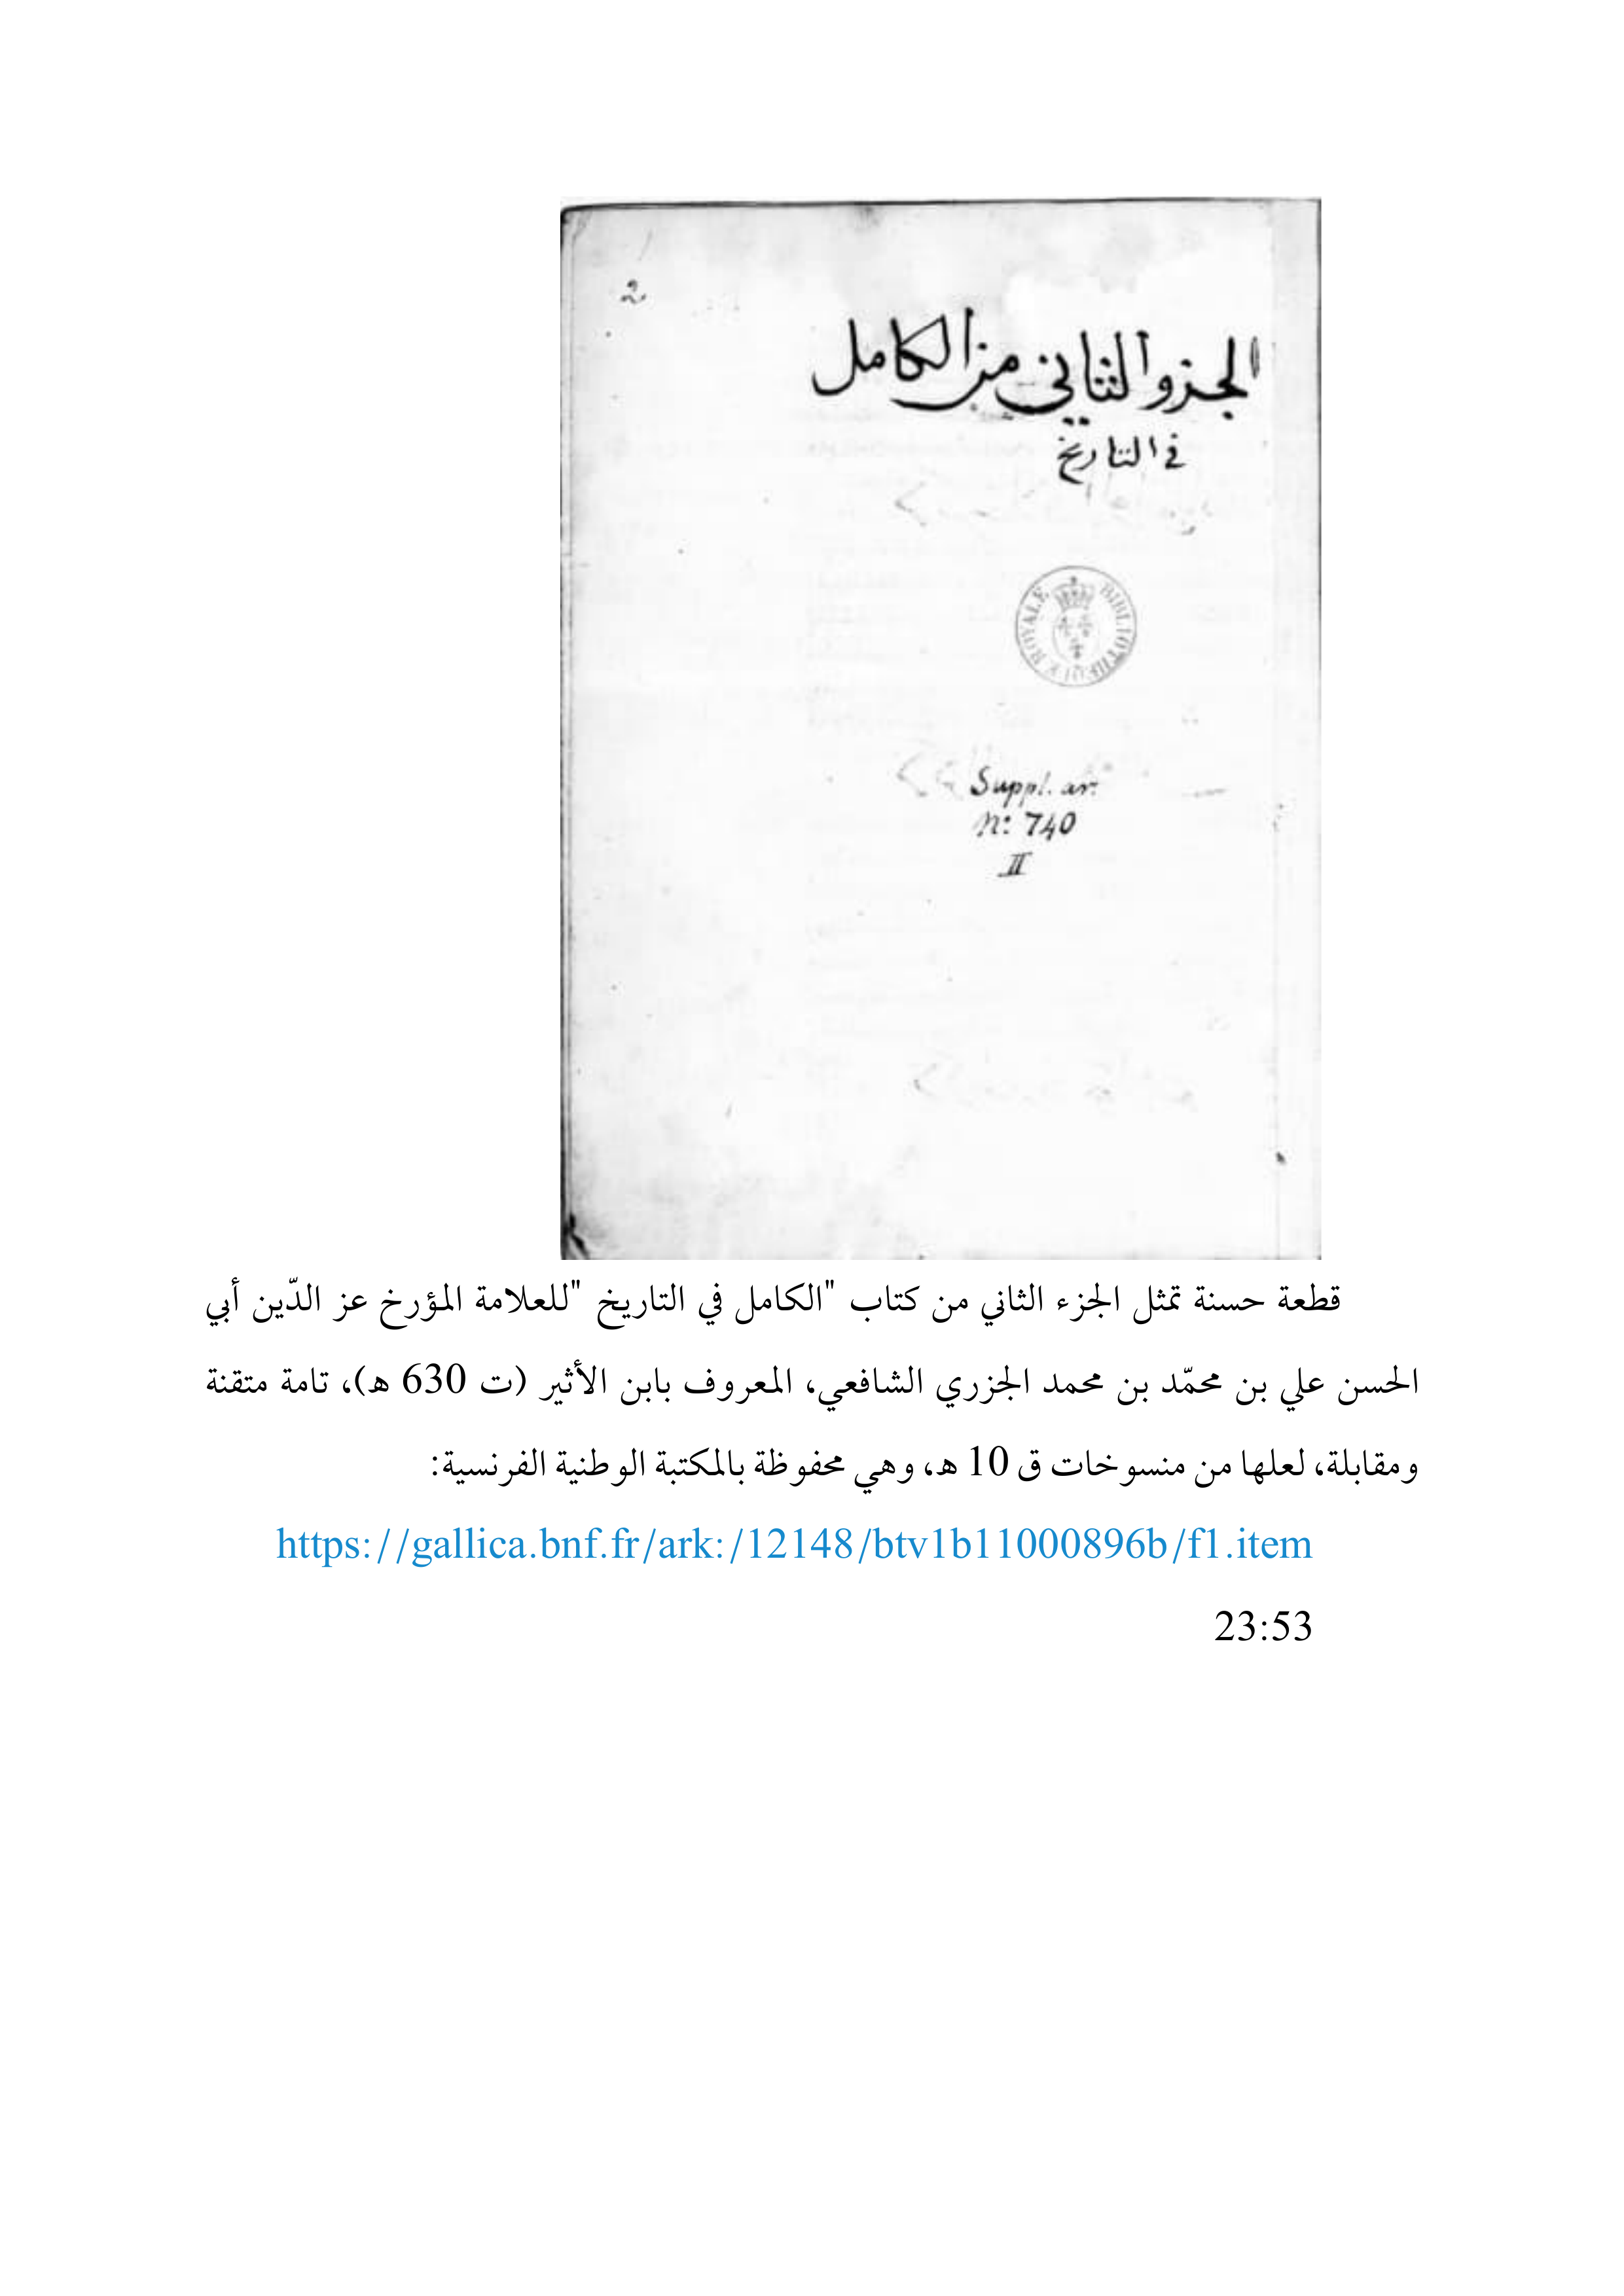 2
الجزو الثاني من الكامل
في التاريخ
BIBLIOTHEQUE ROYALE
Suppl. ar.
n: 740
II
قطعة حسنة تمثل الجزء الثاني من كتاب "الكامل في التاريخ "للعلامة المؤرخ عز الدّين أبي
الحسن علي بن محمّد بن محمد الجزري الشافعي، المعروف بابن الأثير (ت 630 ه)، تامة متقنة
ومقابلة، لعلها من منسوخات ق 10 ه، وهي محفوظة بالمكتبة الوطنية الفرنسية:
https://gallica.bnf.fr/ark:/12148/btv1b11000896b/f1.item
23:53